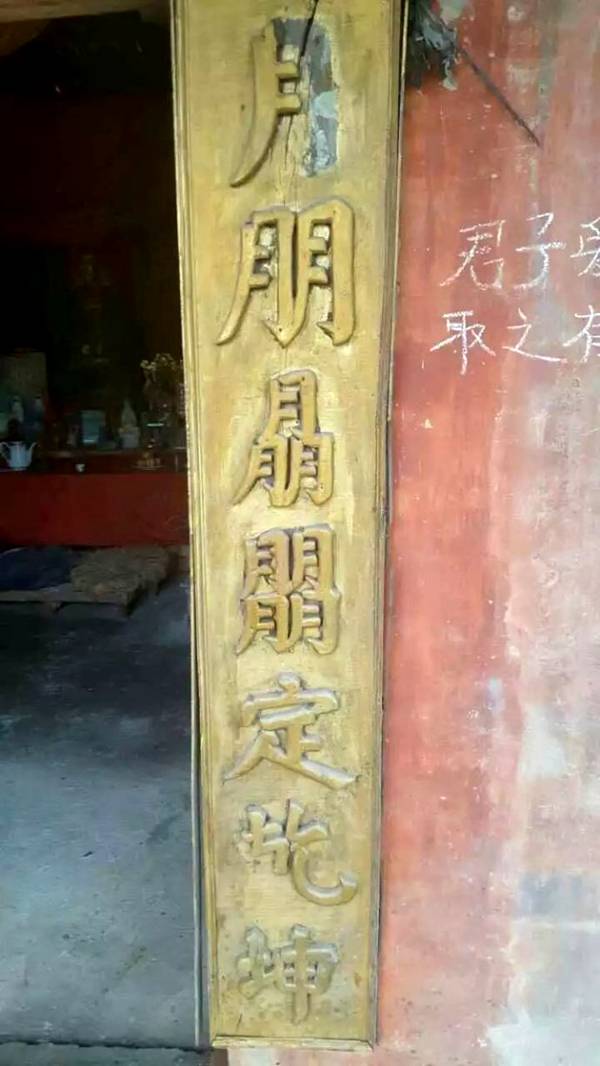 月朋朤定乾坤
君子爱
取之有